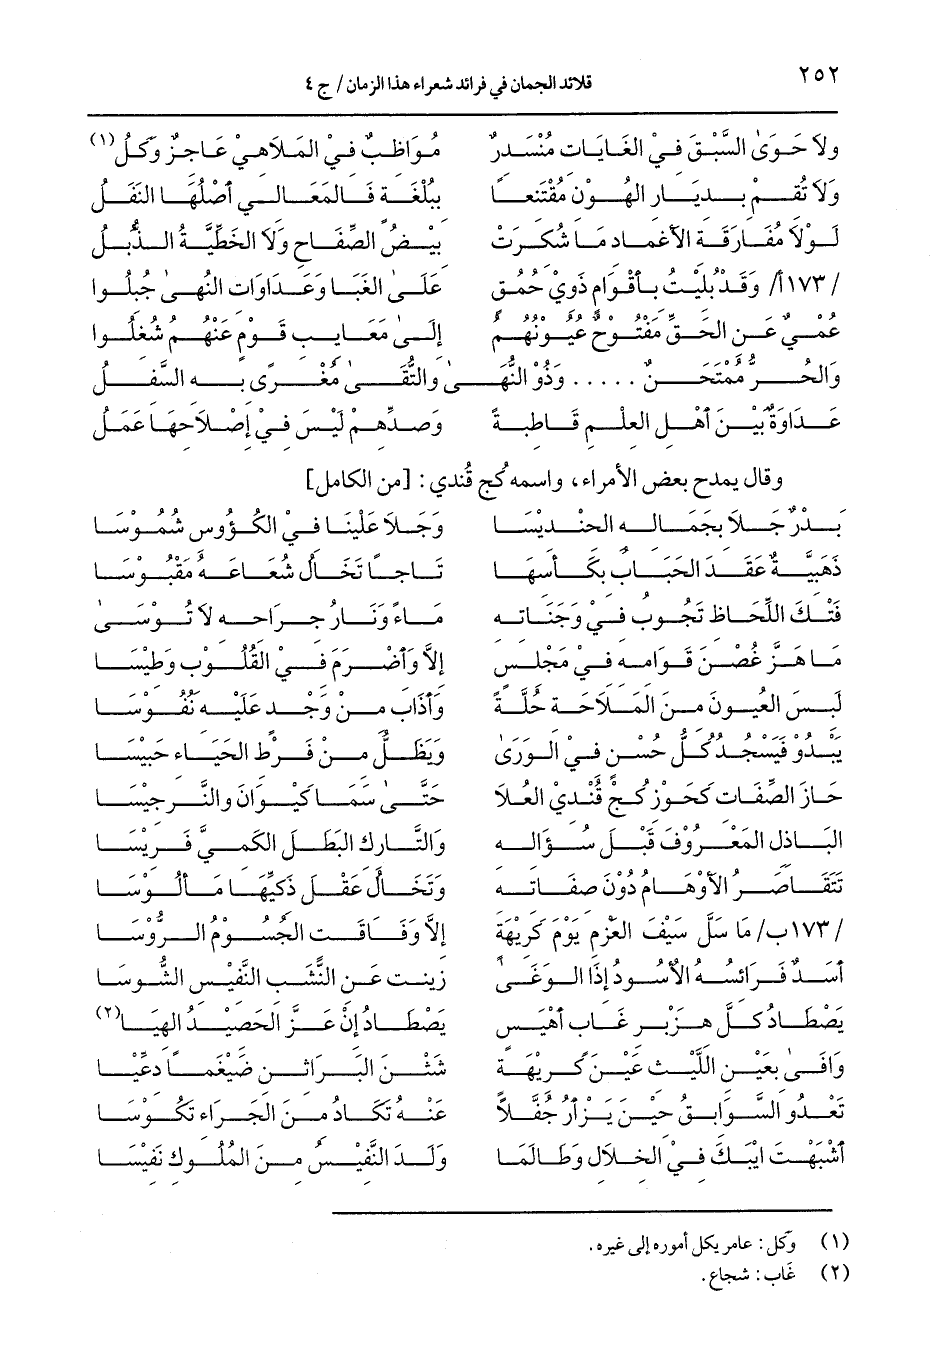 ٢٥٢
قلائد الجمان في فرائد شعراء هذا الزمان / ج ٤
ولا حوى السبق في الغايات منتدر مواظب في الملاهي عاجز وكل(١)
ولا تقم بديار الهون مقتنعا ببلغة فالمعالي أصلها النقل
لولا مفارقة الأغماد ما شكرت بيض الصفاح ولا الخطية الذبل
/١٧٣أ/ وقد بليت بأقوام ذوي حمق على الغبا وعداوات النهى جبلوا
عمي عن الحق مفتوح عيونهم إلى معايب قوم عنهم شغلوا
والحر ممتحن ..... وذو النهى والتقى مغرى به السفل
عداوة بين أهل العلم قاطبة وصدهم ليس في إصلاحها عمل
وقال يمدح بعض الأمراء، واسمه كج قندي: [من الكامل]
بدر جلا بجماله الحنديسا وجلا علينا في الكؤوس شموسا
ذهبية عقد الحباب بكأسها تاجا تخال شعاعه مقبوسا
فتك اللحاظ تجوب في وجناته ماء ونار جراحه لا توسى
ما هز غصن قوامه في مجلس إلا وأضرم في القلوب وطيسا
لبس العيون من الملاحة حلة وأذاب من وجد عليه نفوسا
يبدو فيسجد كل حسن في الورى ويظل من فرط الحياء حبيسا
حاز الصفات كحوز كج قندي العلا حتى سما كيوان والبرجيسا
الباذل المعروف قبل سؤاله والتارك البطل الكمي فريسا
تتقاصر الأوهام دون صفاته وتخال عقل ذكيها مألوسا
/١٧٣ب/ ما سل سيف العزم يوم كريهة إلا وفاقت الجسوم الروسا
أسد فرائسه الأسود إذا الوغى زينت عن النشب النفيس الشوسا
يصطاد كل هزبر غاب أهيس يصطاد إن عز الحصيد الهيسا(٢)
وافى بعين الليث عين كريهة شثن البراثن ضيغما دعيسا
تعدو السوابق حين يزأر جفلا عنه تكاد من الجراء تكوسا
أشبهت ايبك في الخلال وطالما ولد النفيس من الملوك نفيسا
(١) وكل: عامر يكل أموره إلى غيره.
(٢) غاب: شجاع.